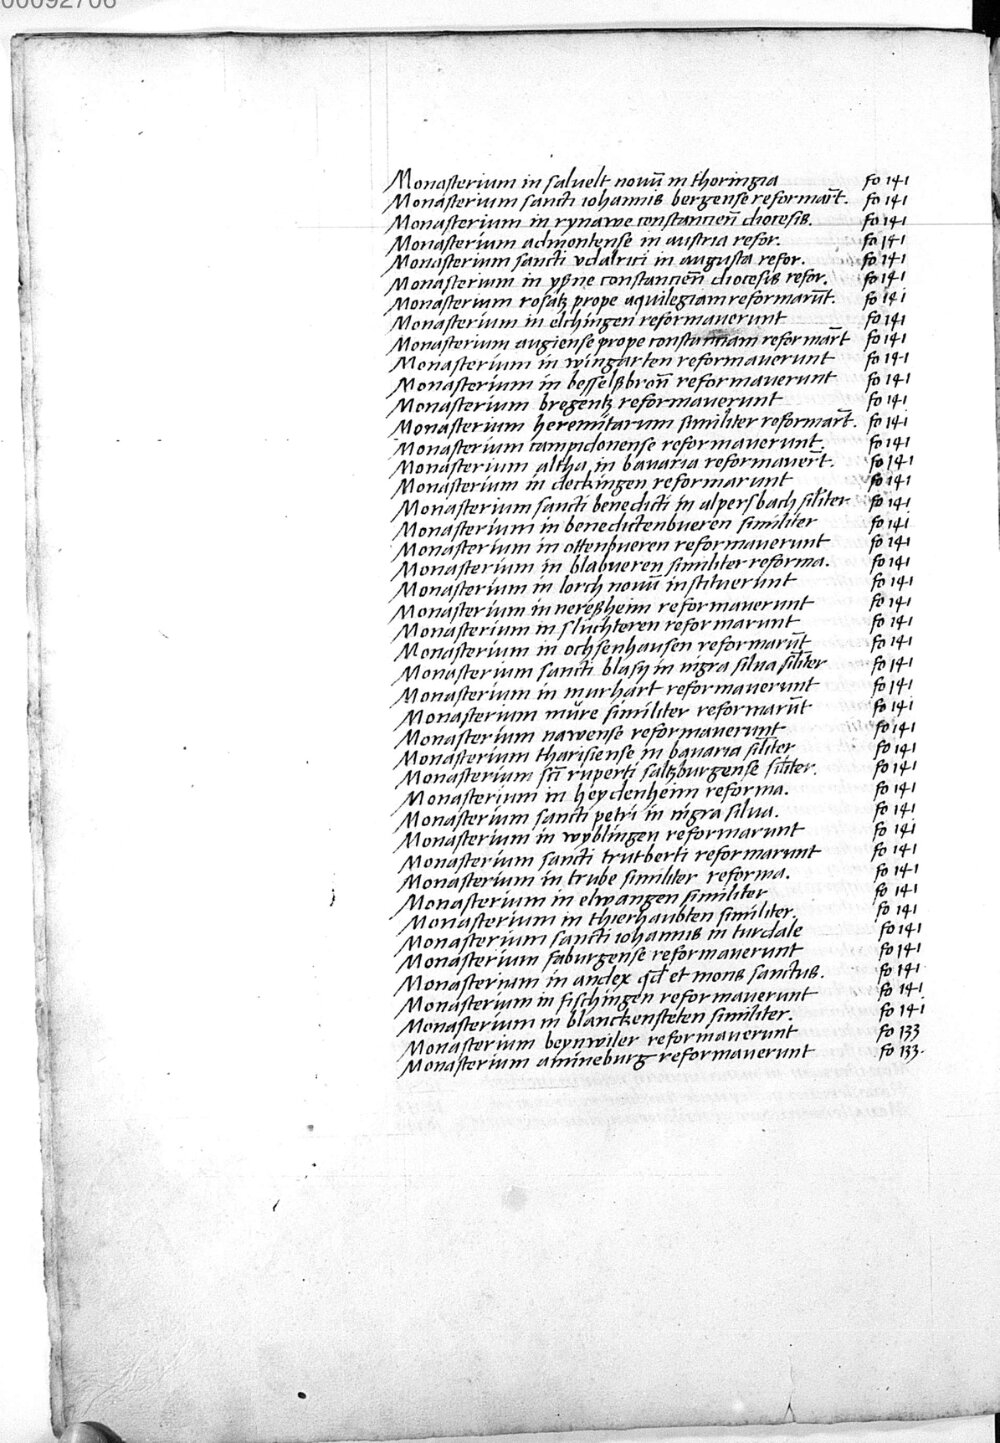 00092706
Monasterium in salvelt novū in thoringia fo 141
Monasterium sancti iohannis bergense reformaȓt. fo 141
Monasterium in rynawe constancieñ diocesis. fo 141
Monasterium admontense in austria refor. fo 141
Monasterium sancti vdalrici in augusta refor. fo 141
Monasterium in yßne constancieñ diocesis refor. fo 141
Monasterium rosatz prope aquilegiam reformarūt. fo 141
Monasterium in elchingen reformaverunt fo 141
Monasterium augiense prope constanciam reformar̄t fo 141
Monasterium in wingarten reformaverunt fo 141
Monasterium in besselßbroñ reformaverunt fo 141
Monasterium bregentz reformaverunt fo 141
Monasterium heremitarum similiter reformar̄t. fo 141
Monasterium campidonense reformaverunt. fo 141
Monasterium altha in bavaria reformaver̄t. fo 141
Monasterium in deckingen reformarunt fo 141
Monasterium sancti benedicti in alpersbach sil̄iter fo 141
Monasterium in benedictenbueren similiter fo 141
Monasterium in ottenbueren reformaverunt fo 141
Monasterium in blabueren similiter reforma. fo 141
Monasterium in lorch novū instituerunt fo 141
Monasterium in nereßheim reformaverunt fo 141
Monasterium in sluchteren reformarunt fo 141
Monasterium in ochsenhausen reformarūt fo 141
Monasterium sancti blasij in nigra silva sil̄iter fo 141
Monasterium in murhart reformaverunt fo 141
Monasterium mŭre similiter reformarūt fo 141
Monasterium nawense reformaverunt fo 141
Monasterium tharisiense in bavaria sil̄iter fo 141
Monasterium sc̄ti ruperti saltzburgense sil̄iter. fo 141
Monasterium in heydenheim reforma. fo 141
Monasterium sancti petri in nigra silva. fo 141
Monasterium in wyblingen reformarunt fo 141
Monasterium sancti trutberti reformarunt fo 141
Monasterium in trube similiter reforma. fo 141
Monasterium in elwangen similiter fo 141
Monasterium in thierhaubten similiter. fo 141
Monasterium sancti iohannis in turdale fo 141
Monasterium saburgense reformaverunt fo 141
Monasterium in andex qd̄ et mons sanctus. fo 141
Monasterium in fischingen reformaverunt fo 141
Monasterium in blanckensteten similiter. fo 141
Monasterium beynwiler reformaverunt fo 133
Monasterium amineburg reformaverunt fo 133.